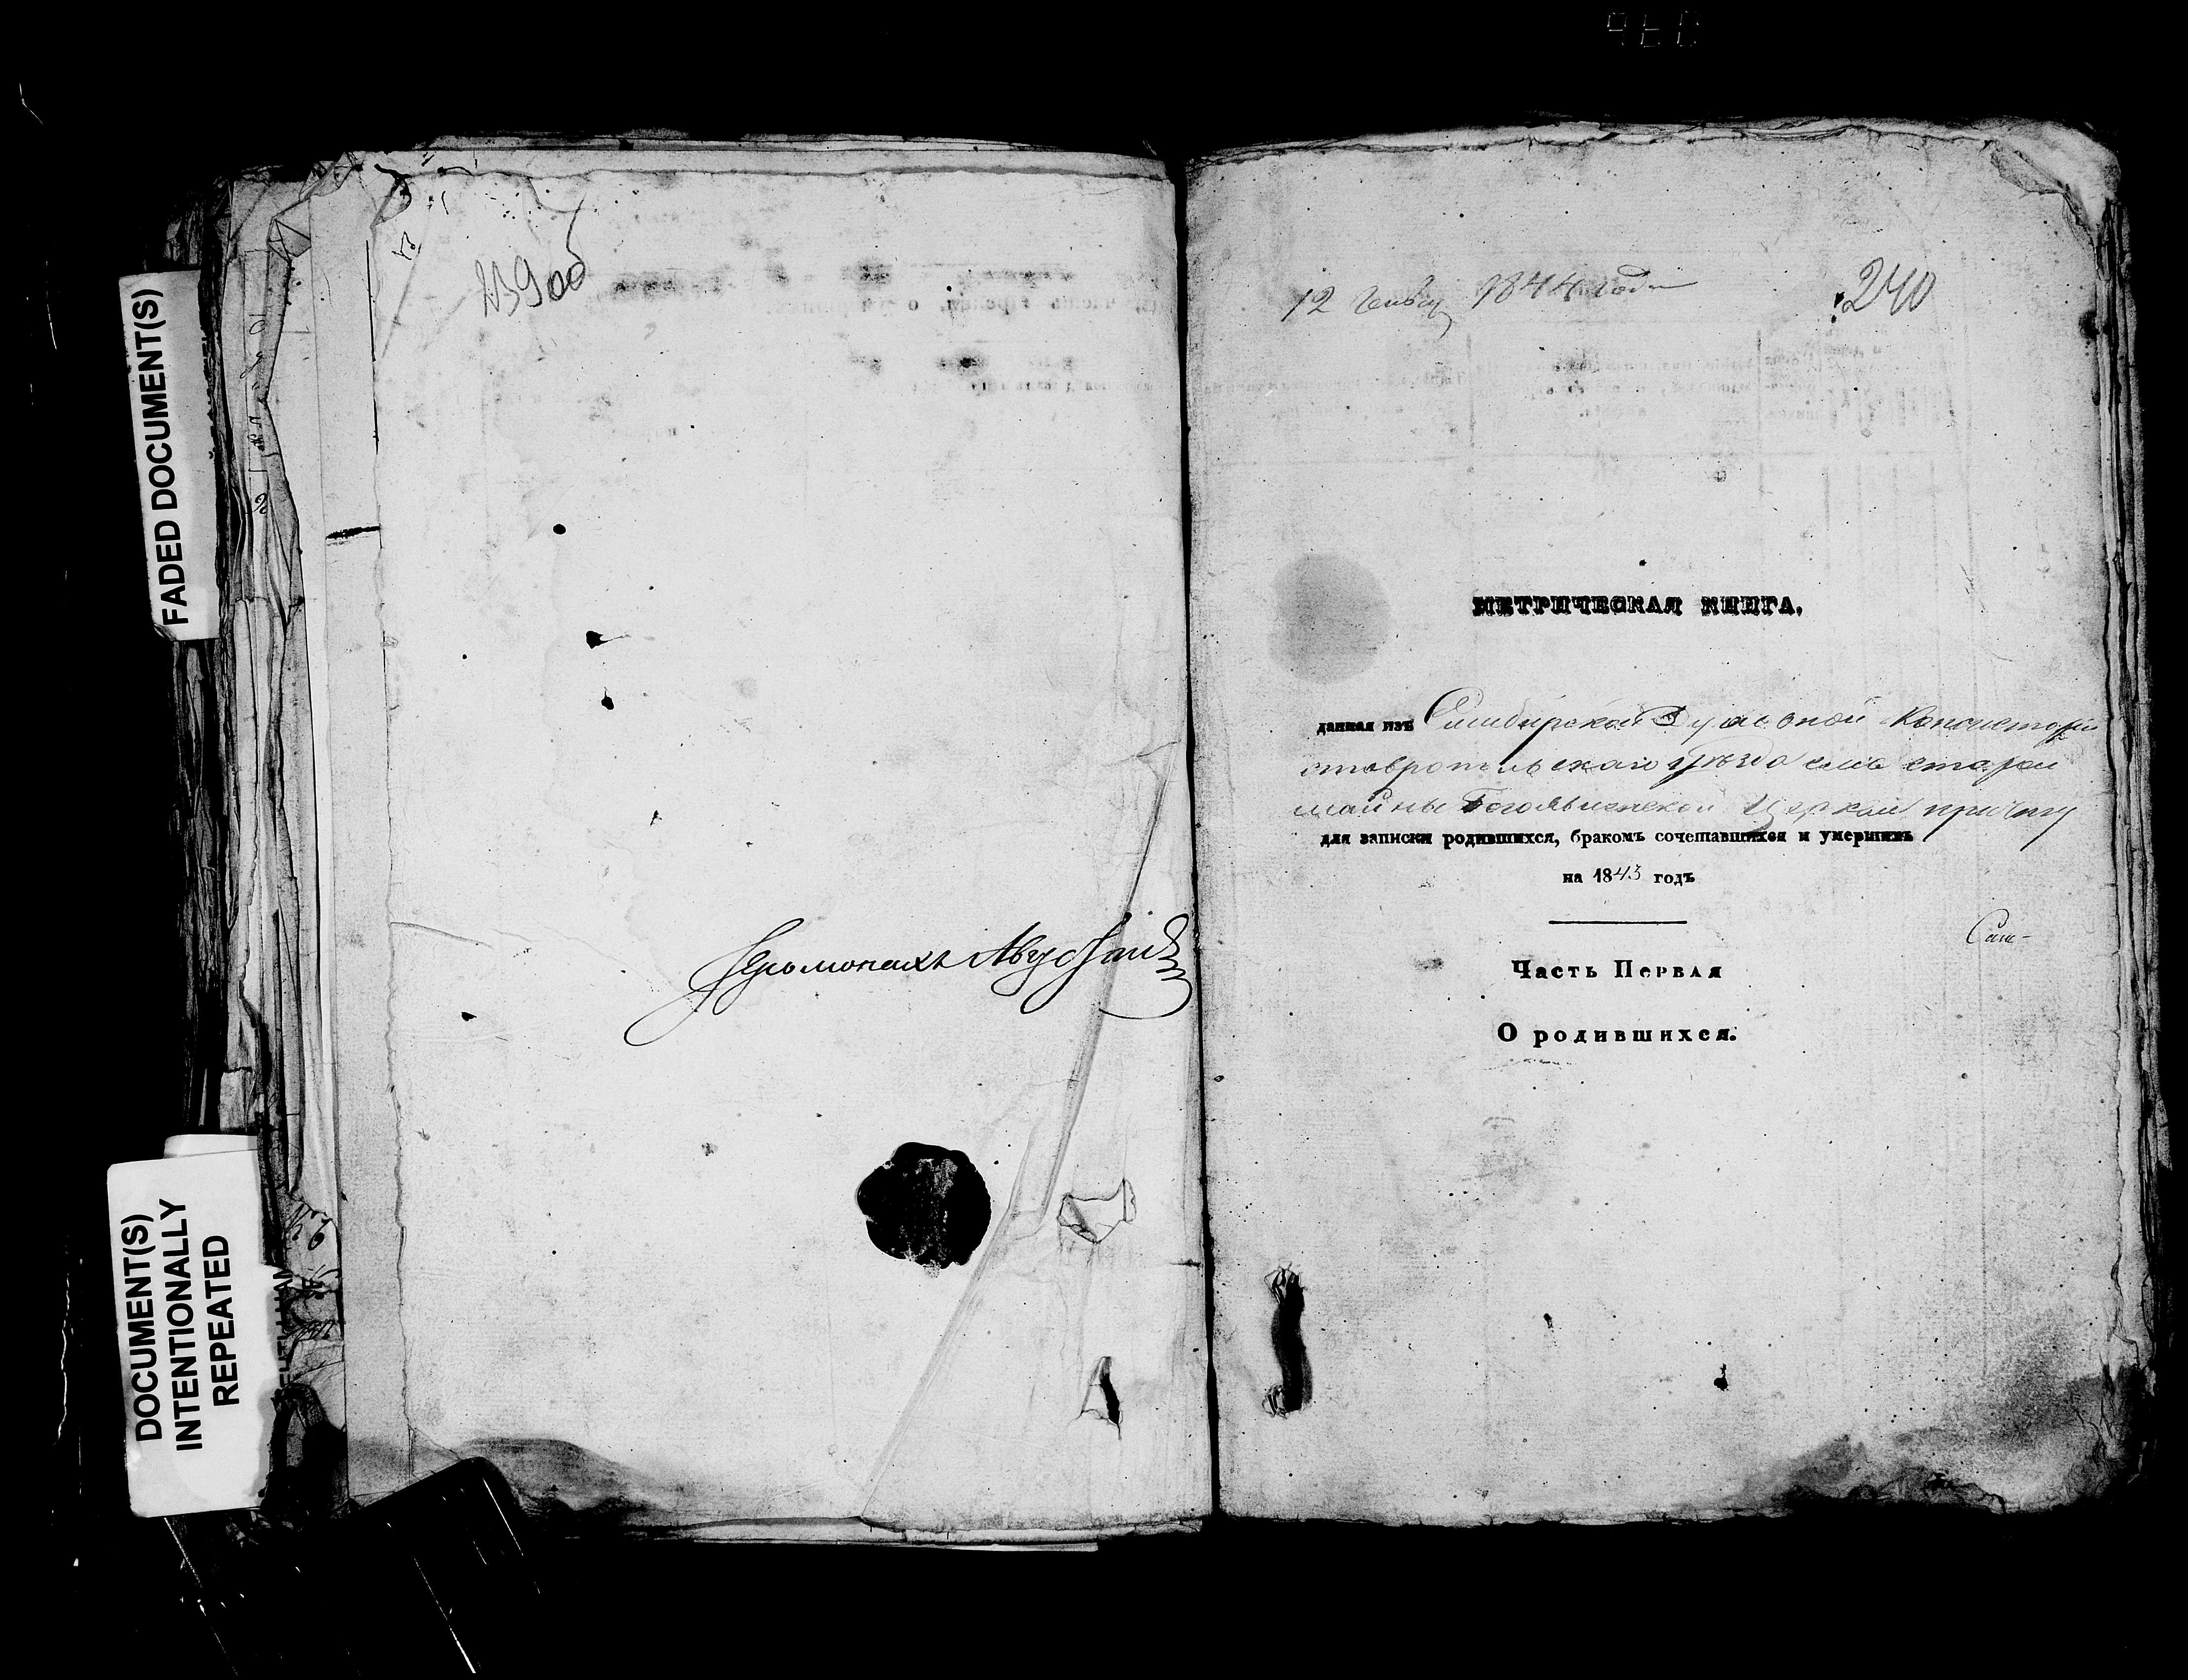 FADED DOCUMENT(S)
DOCUMENT(S)
INTENTIONALLY
REPEATED
239 об
Іеромонахъ Августинъ
12 Генвар 1844 года
240
МЕТРИЧЕСКАЯ КНИГА,
данная изъ Симбирской Духовной Консисторіи
ставропольскаго уѣзда села старой
майны Богоявленской Церкви причту
для записки родившихся, бракомъ сочетавшихся и умершихъ
на 1843 годъ
Часть Первая
О родившихся.